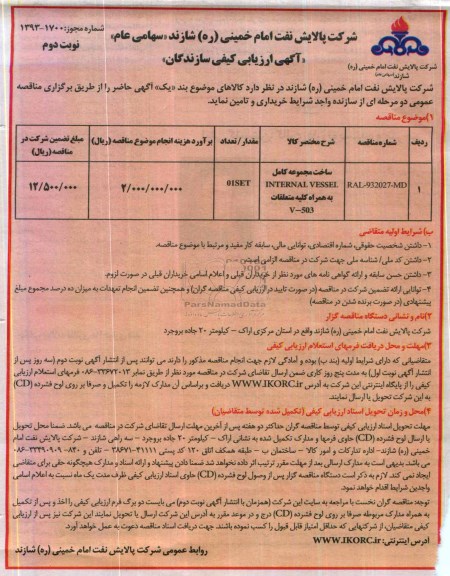 شماره مجوز: ۱۷۰۰-۱۳۹۳
نوبت دوم
شرکت پالایش نفت امام خمینی (ره) شازند «سهامی عام»
«آگهی ارزیابی کیفی سازندگان»
شرکت پالایش نفت امام خمینی (ره)
شازند (سهامی عام)
شرکت پالایش نفت امام خمینی (ره) شازند در نظر دارد کالاهای موضوع بند «یک» آگهی حاضر را از طریق برگزاری مناقصه
عمومی دو مرحله ای از سازنده واجد شرایط خریداری و تامین نماید.
۱)موضوع مناقصه
ردیف شماره مناقصه شرح مختصر کالا مقدار / تعداد برآورد هزینه انجام موضوع مناقصه (ریال) مبلغ تضمین شرکت در مناقصه (ریال)
۱ RAL-932027-MD ساخت مجموعه کامل INTERNAL VESSEL به همراه کلیه متعلقات V-503 01SET ۲/۰۰۰/۰۰۰/۰۰۰ ۱۲/۵۰۰/۰۰۰
ب)شرایط اولیه متقاضی
۱-داشتن شخصیت حقوقی، شماره اقتصادی، توانایی مالی، سابقه کار مفید و مرتبط با موضوع مناقصه.
۲-داشتن کد ملی/ شناسه ملی جهت شرکت در مناقصه الزامی است.
۳-داشتن حسن سابقه و ارائه گواهی نامه های مورد نظر از خریداران قبلی و اعلام اسامی خریداران قبلی در صورت لزوم.
۴-توانایی ارائه تضمین شرکت در مناقصه (در صورت تایید در ارزیابی کیفی مناقصه گران) و همچنین تضمین انجام تعهدات به میزان ده درصد مجموع مبلغ
پیشنهادی (در صورت برنده شدن در مناقصه)
ParsNamadData
۲)نام و نشانی دستگاه مناقصه گزار
شرکت پالایش نفت امام خمینی (ره) شازند واقع در استان مرکزی اراک – کیلومتر ۲۰ جاده بروجرد
۳)مهلت و محل دریافت فرمهای استعلام ارزیابی کیفی
متقاضیانی که دارای شرایط اولیه (بند ب) بوده و آمادگی لازم جهت انجام مناقصه مذکور را دارند می توانند پس از انتشار آگهی نوبت دوم (سه روز پس از
انتشار آگهی نوبت اول) به مدت پنج روز کاری ضمن ارسال تقاضای شرکت در مناقصه مورد نظر از طریق نمابر فرمهای استعلام ارزیابی
کیفی را از پایگاه اینترنتی این شرکت به آدرس WWW.IKORC.ir دریافت و براساس آن مدارک لازمه را تکمیل و صرفا بر روی لوح فشرده (CD)
به این شرکت تحویل یا ارسال نمایند.
۴)محل و زمان تحویل اسناد ارزیابی کیفی (تکمیل شده توسط متقاضیان)
مهلت تحویل اسناد ارزیابی کیفی توسط مناقصه گران حداکثر دو هفته پس از آخرین مهلت ارسال تقاضای شرکت در مناقصه می باشد. ضمنا محل تحویل
یا ارسال لوح فشرده (CD) حاوی فرمها و مدارک تکمیل شده به نشانی اراک – کیلومتر ۲۰ جاده بروجرد – سه راهی شازند – شرکت پالایش نفت امام
خمینی (ره) شازند– اداره تدارکات و امور کالا – ساختمان ب – طبقه همکف اتاق ۱۲۰ کد پستی ۴۱۱۱۱-۳۸۶۷۱ – تلفن
می باشد. بدیهی است به مدارک ارسالی بعد از مهلت مقرر ترتیب اثر داده نخواهد شد ضمنا دادن پیشنهاد و ارائه اسناد و مدارک هیچگونه حقی برای متقاضی
ایجاد نمی کند. لازم به ذکر است دستگاه مناقصه گزار پس از وصول لوح فشرده (CD) حاوی اسناد ارزیابی کیفی ظرف مدت یک ماه نسبت به اعلام اسامی
واجدین شرایط اقدام خواهد نمود.
توجه: مناقصه گران نخست با مراجعه به سایت این شرکت (همزمان با انتشار آگهی نوبت دوم) می بایست دو برگ فرم ارزیابی کیفی را اخذ و پس از تکمیل
به همراه مدارک مربوطه صرفا بر روی لوح فشرده (CD) درج و در موعد مقرر به آدرس این شرکت ارسال یا تحویل نمایند این شرکت نیز پس از ارزیابی
کیفی متقاضیان، از شرکتهایی که حداقل امتیاز قابل قبول را کسب نموده باشند. جهت دریافت اسناد مناقصه دعوت به عمل خواهد آورد.
آدرس اینترنتی: WWW.IKORC.ir
روابط عمومی شرکت پالایش نفت امام خمینی (ره) شازند